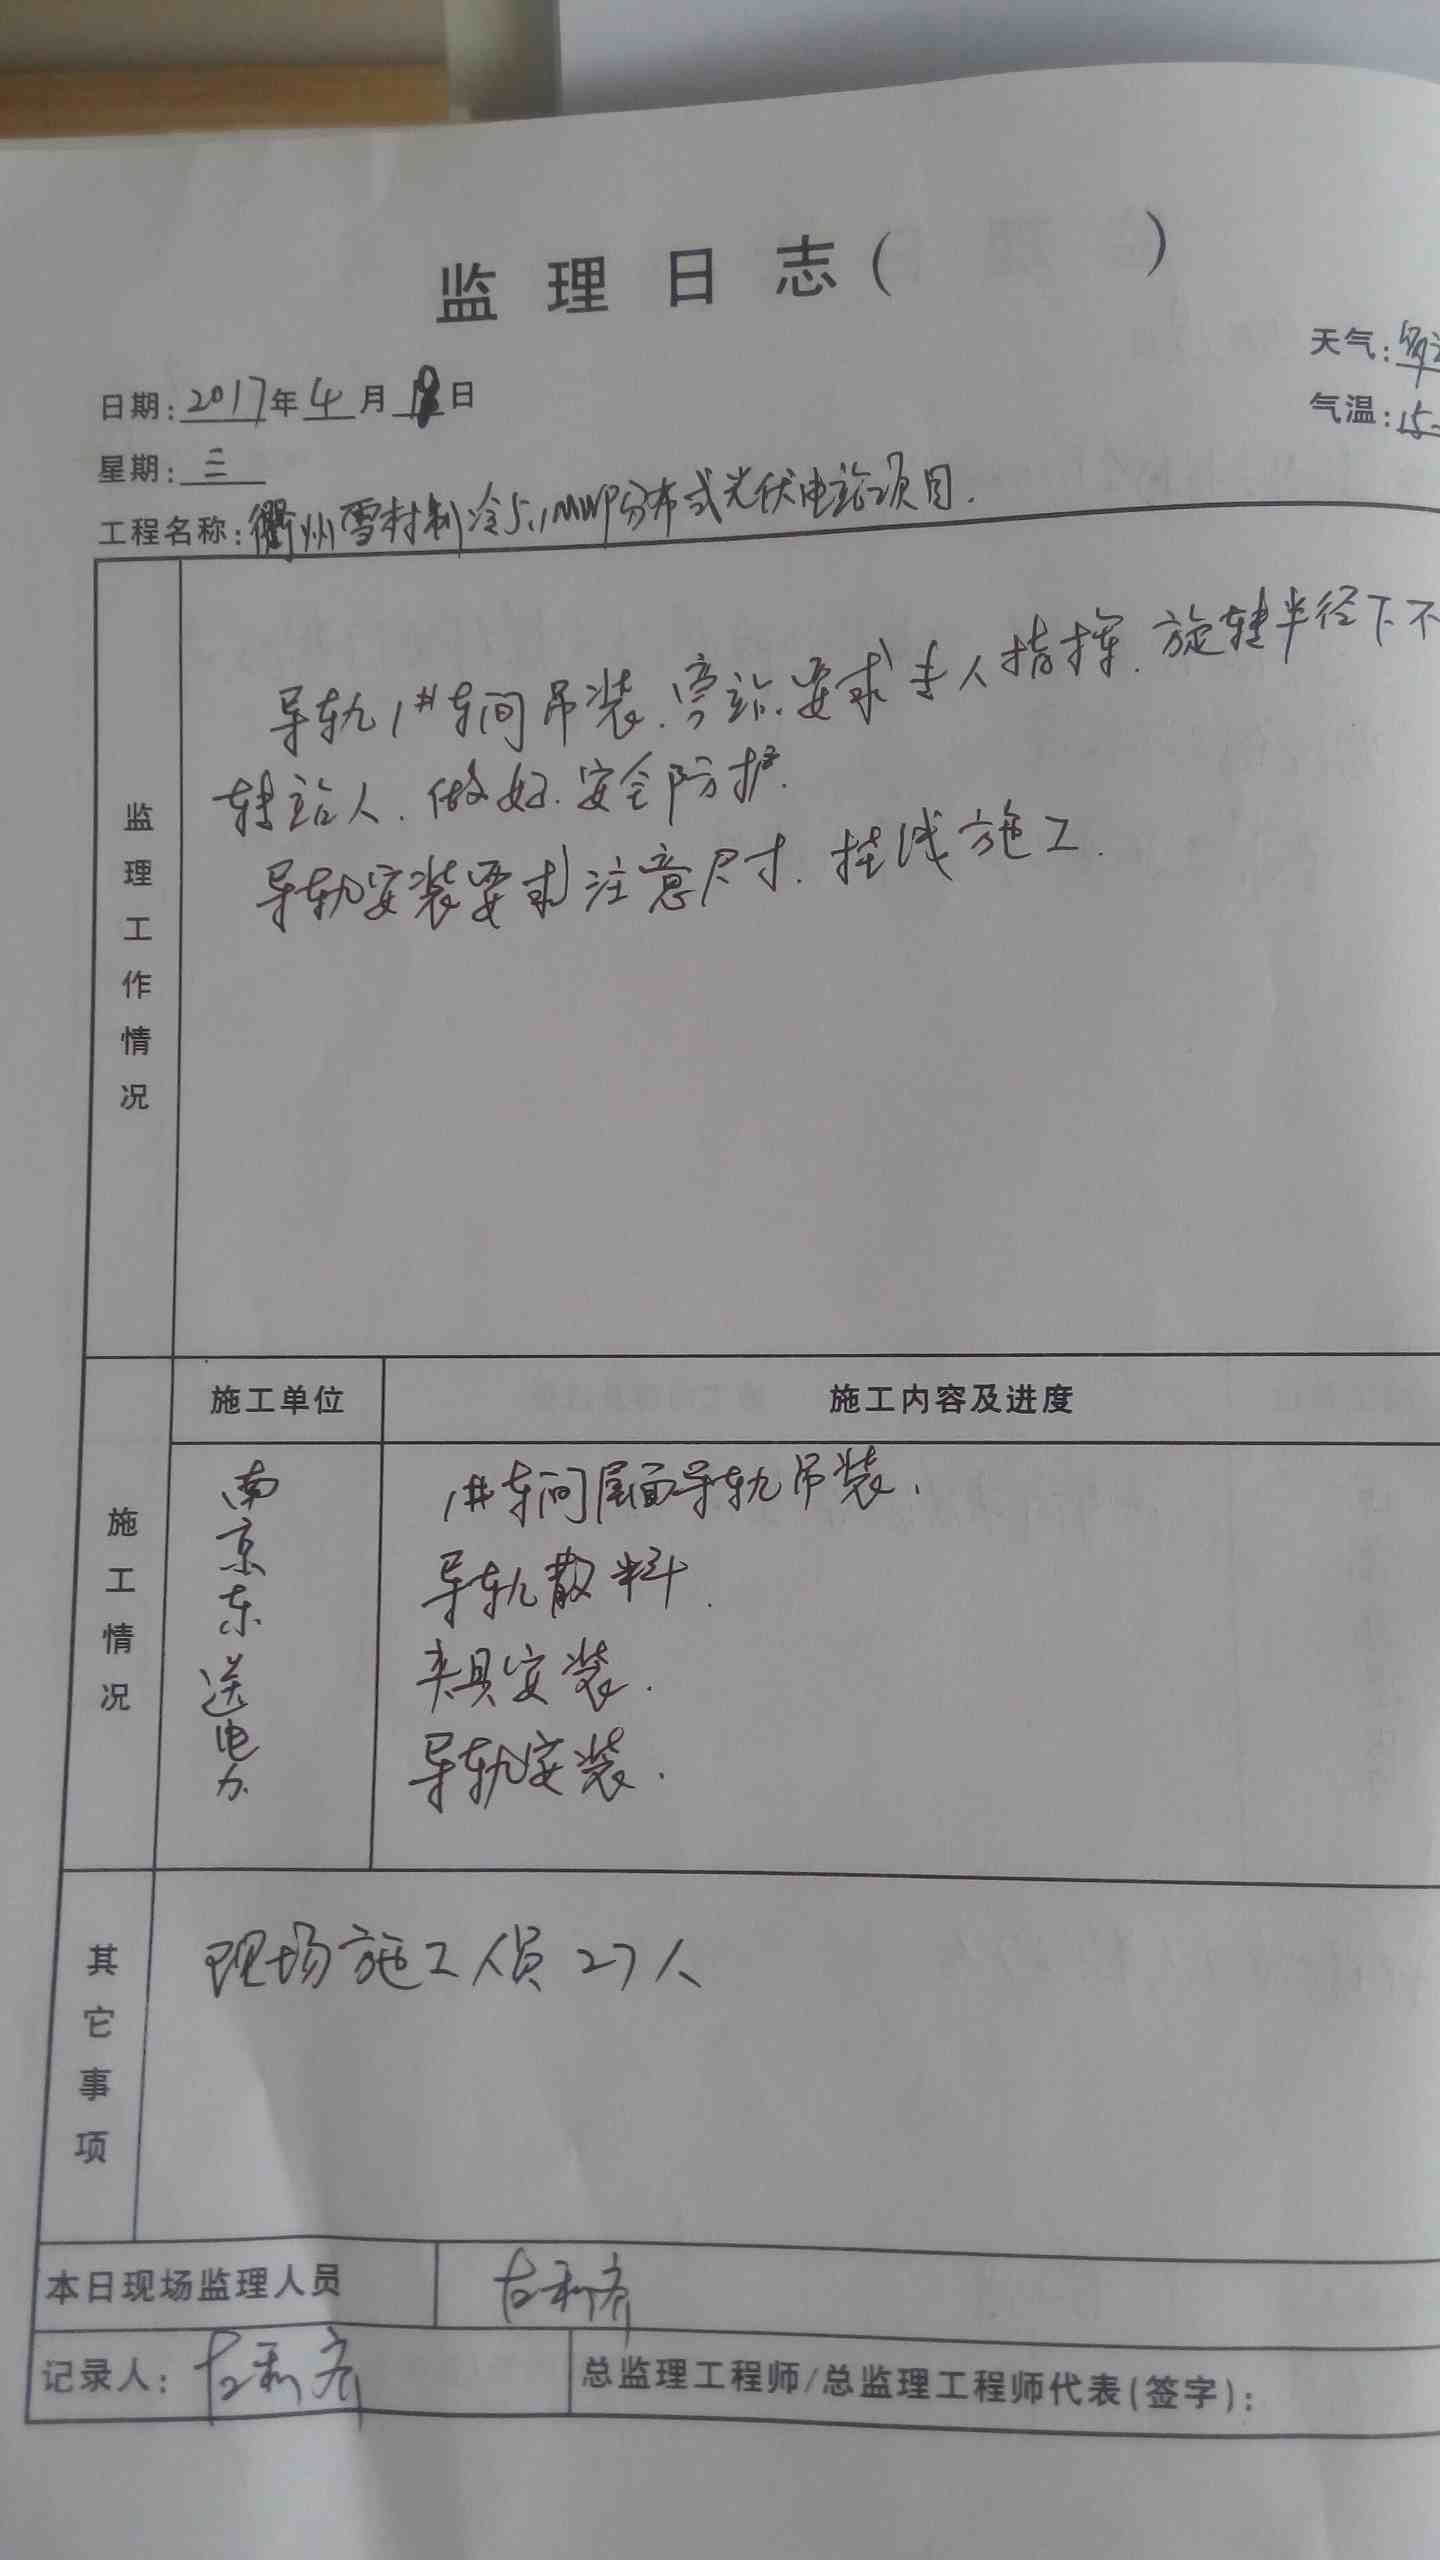 监理日志( )
天气:
日期:2017年4月 日
气温:15-
星期:三
工程名称:衢州雪村制冷5.1MWP分布式光伏电站项目.
监理工作情况
导轨1#车间吊装.旁站.要求专人指挥.旋转半径下不
转站人.做好.安全防护.
导轨安装要求注意尺寸.挂线施工.
施工情况
施工单位 施工内容及进度
南京东送电力
1#车间屋面导轨吊装.
导轨散料.
夹具安装.
导轨安装.
其它事项
现场施工人员27人
本日现场监理人员
记录人: 总监理工程师/总监理工程师代表(签字):